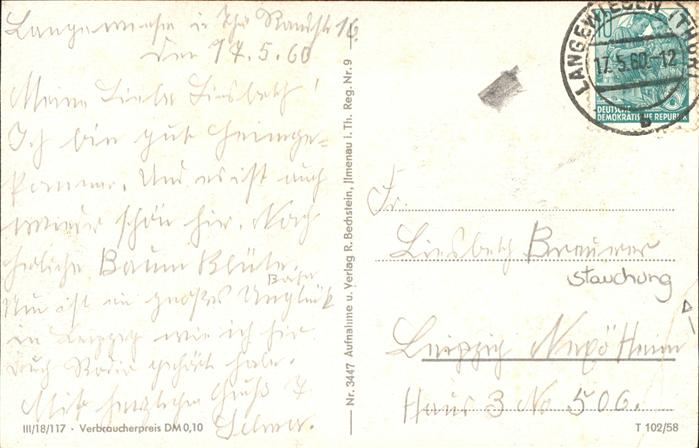 Langewiesen i Thü Randstr 16
den 17.5.60
Meine Liebe Liesbeth!
Ich bin gut heimge-
kommen. Und es ist auch
wieder schön hir. Noch
herliche Baum Blüte.
Bahn
Nun ist ein großes Unglück
in Leipzig wie ich hir
durch Radio gehört habe.
Mit herzlichen Gruß
Selma.
III/18/117 · Verbraucherpreis DM 0,10
Nr. 3447 Aufnahme u. Verlag R. Bechstein, Ilmenau i. Th. Reg. Nr. 9
LANGEWIESEN (THÜR)
17.5.60.-12
b
10
DEUTSCHE
DEMOKRATISCHE REPUBLIK
Fr.
Liesbeth Breuerer
stauchung
Leipzig Nexö Heim
Haus 3 No 506.
T 102/58